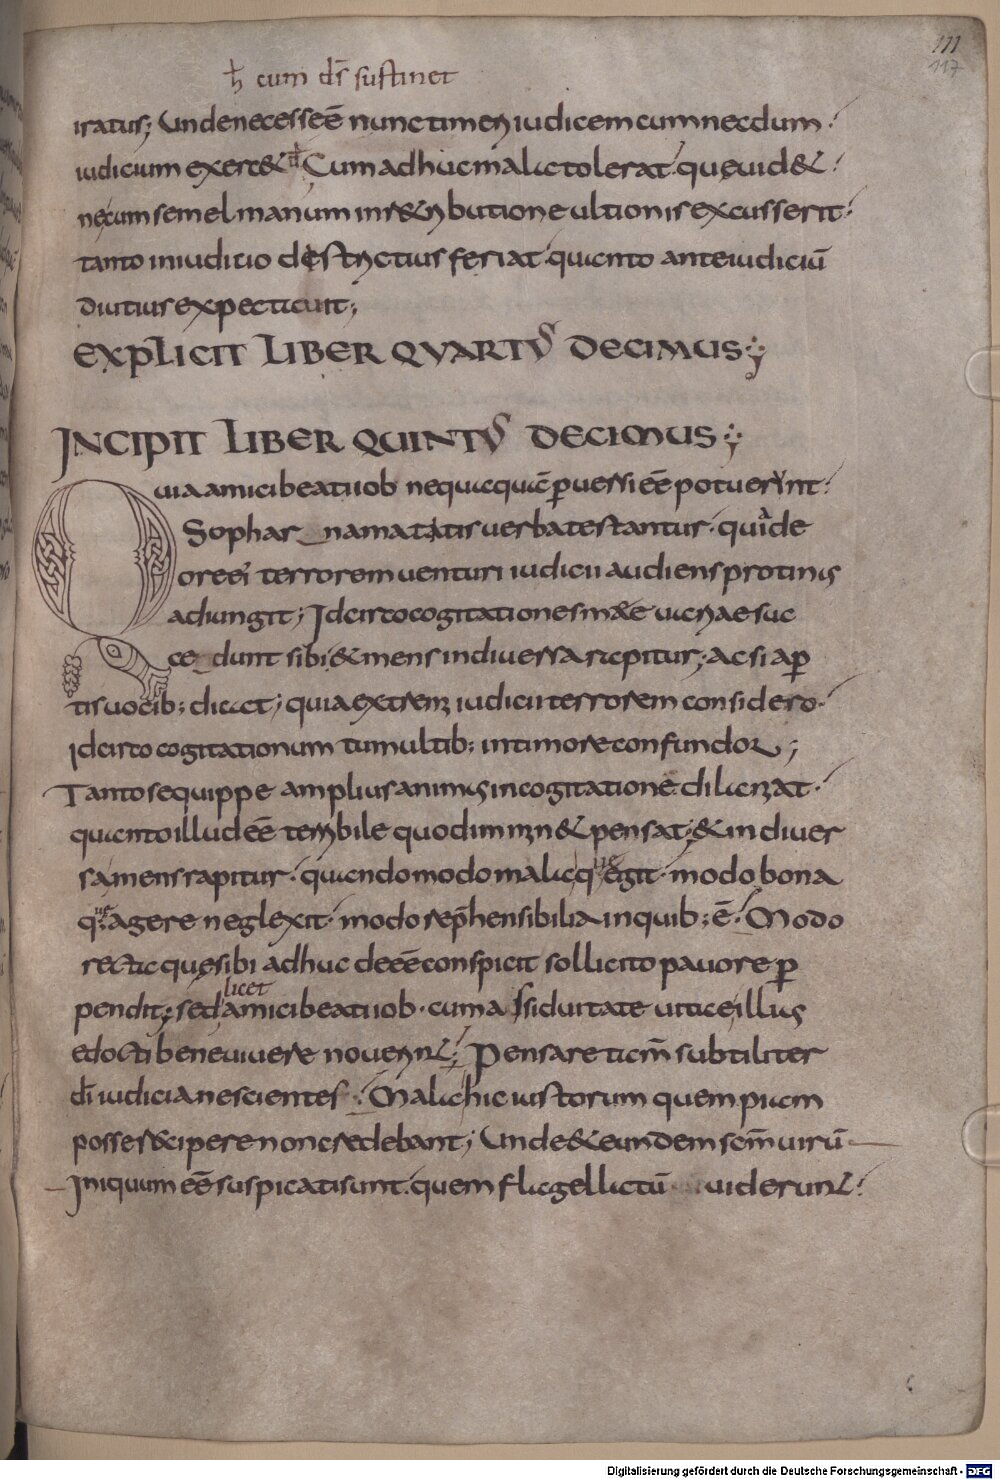 111
117
h̄ cum dr̄ sustinet
iratus; Unde necesse ē nunc timeri iudicem cum necdum
iudicium exercet đ Cum adhuc mala tolerat que uidet
nec cum semel manum in retributione ultionis excusserit
tanto in iuditio destrictius feriat quanto ante iudiciū
diutius expectauit;
EXPLICIT LIBER QVARTVS DECIMUS
INCIPIT LIBER QUINTVS DECIMUS
Quia amici beati iob nequaquā ꝑuersi eē potuerint
Sophar namatitis uerba testantur qui de
ore ei terrorem uenturi iudicii audiens protinus
adiungit; Idcirco cogitationes meae uariae suc
cedunt sibi & mens in diuersa rapitur; ac si aꝑ
tis uocib; dicat; quia extremi iudicii terrorem considero
idcirco cogitationum tumultib; in timore confundor;
Tanto se quippe amplius animus in cogitatione dilacerat
quanto illud eē terribile quod imminet pensat; & in diuer
sa mens rapitur quando modo mala que egit modo bona
que agere neglexit modo rep̄hensibilia in quib; ē Modo
recta que sibi adhuc deeē conspicit sollicito pauore ꝑ
pendit; sed licet amici beati iob cum assiduitate uitae illius
edocti bene uiuere nouerint; Pensare tam̄ subtiliter
dī iudicia nescientes Mala hic iustorum quempiam
posse recipere non credebant; Unde & eundem scm̄ uirū
Iniquum eē suspicati sunt quem flagellatū uiderunt
Digitalisierung gefördert durch die Deutsche Forschungsgemeinschaft - DFG